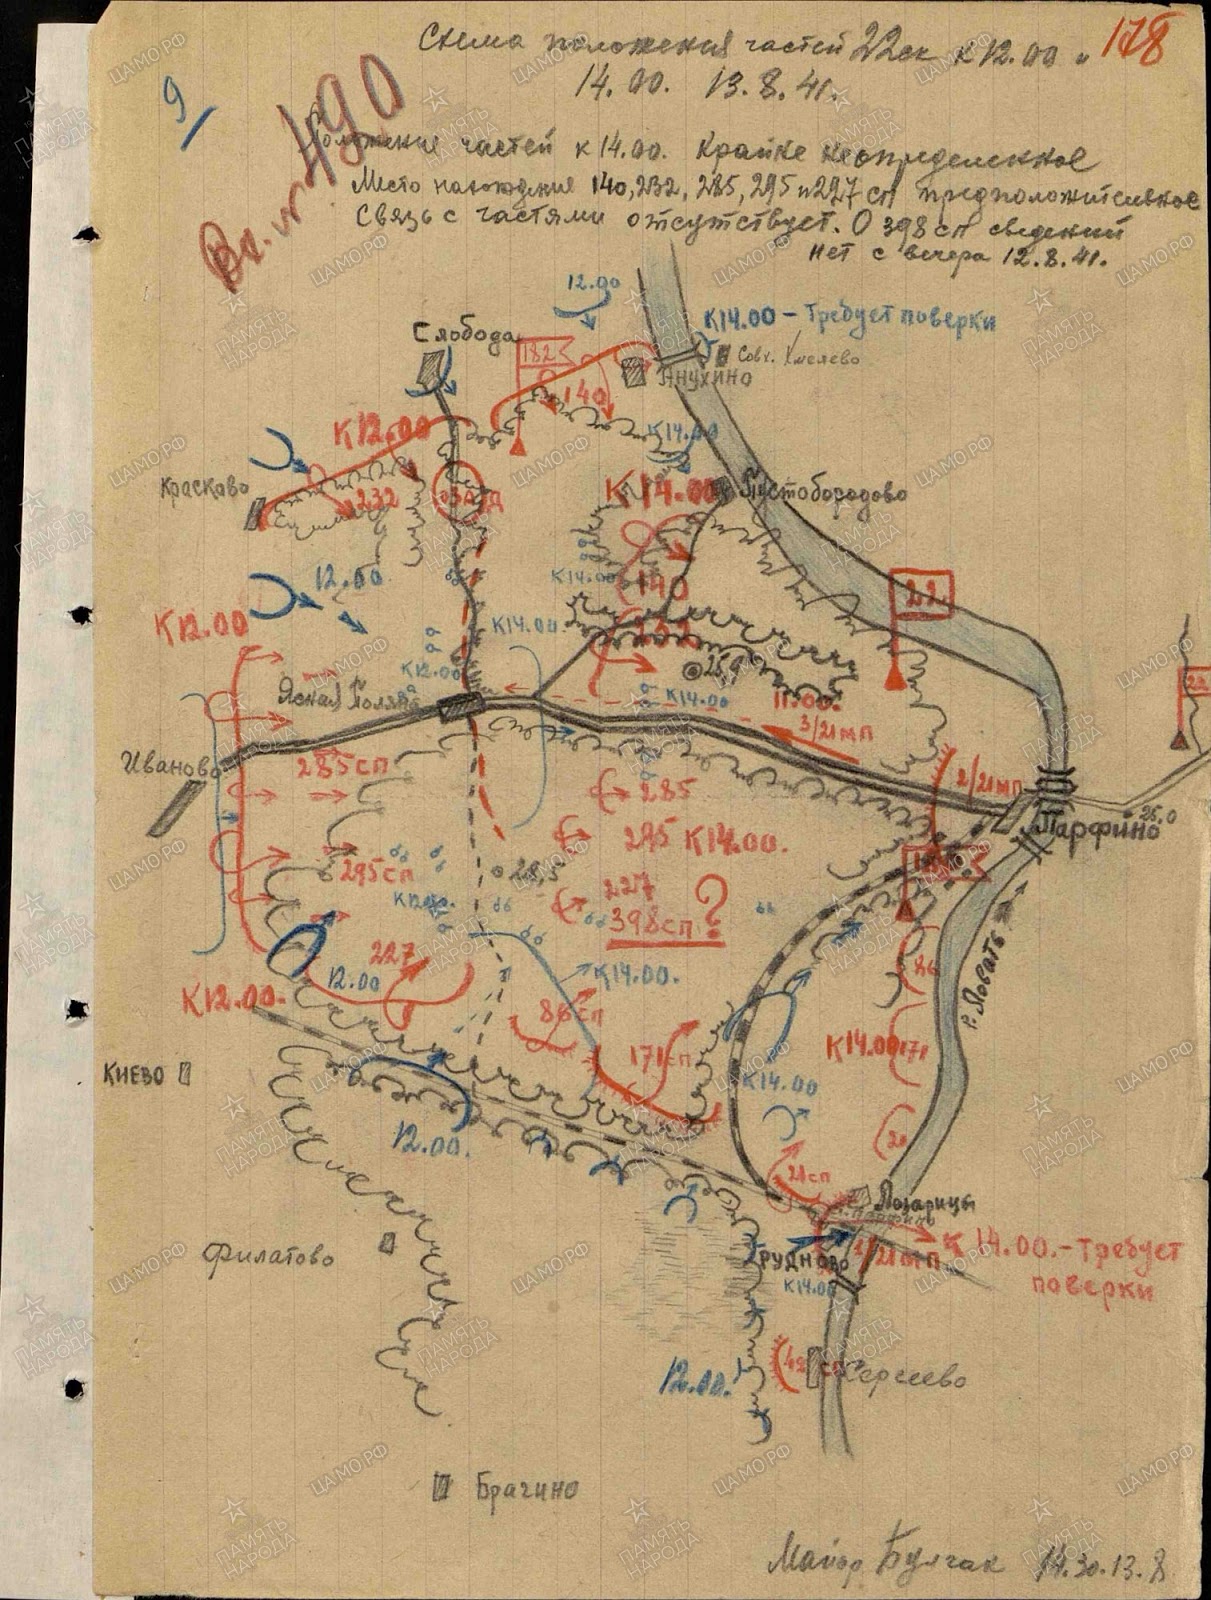 178
Схема положения частей 22ск к 12.00 и
14.00. 13.8.41.
9/
Вх. № 490
Положение частей к 14.00. крайне неопределенное
Место нахождения 140, 232, 285, 295 и 227 сп предположительное
Связь с частями отсутствует. О 398 сп сведений
нет с вечера 12.8.41.
12.00
К14.00 – Требует поверки
Слобода
182
Совх. Хмелево
Анухино
140
К 12.00
К14.00
Красково
232
К 14.00
Пустобородово
12.00
К14.00
140
22
К 12.00
К14.00.
232
К12.00
25,9
Ясная Поляна
К14.00
11.00.
3/21мп
22
Иваново
285сп
285
2/21мп
Парфино
25.0
295 К14.00.
295сп
28,5
227
398сп ?
227
12.00
К14.00.
86
р. Ловать
К 12.00.
86сп
К14.00 171
171сп
Киево
К14.00
12.00.
21
21сп
Позарицы
Филатово
Трудново
1/21мп
К 14.00. – Требует
поверки
К14.00
12.00.
42 сп
Сергеево
Брагино
Майор Булгак 14.30. 13.8
ЦАМО РФ
ПАМЯТЬ НАРОДА